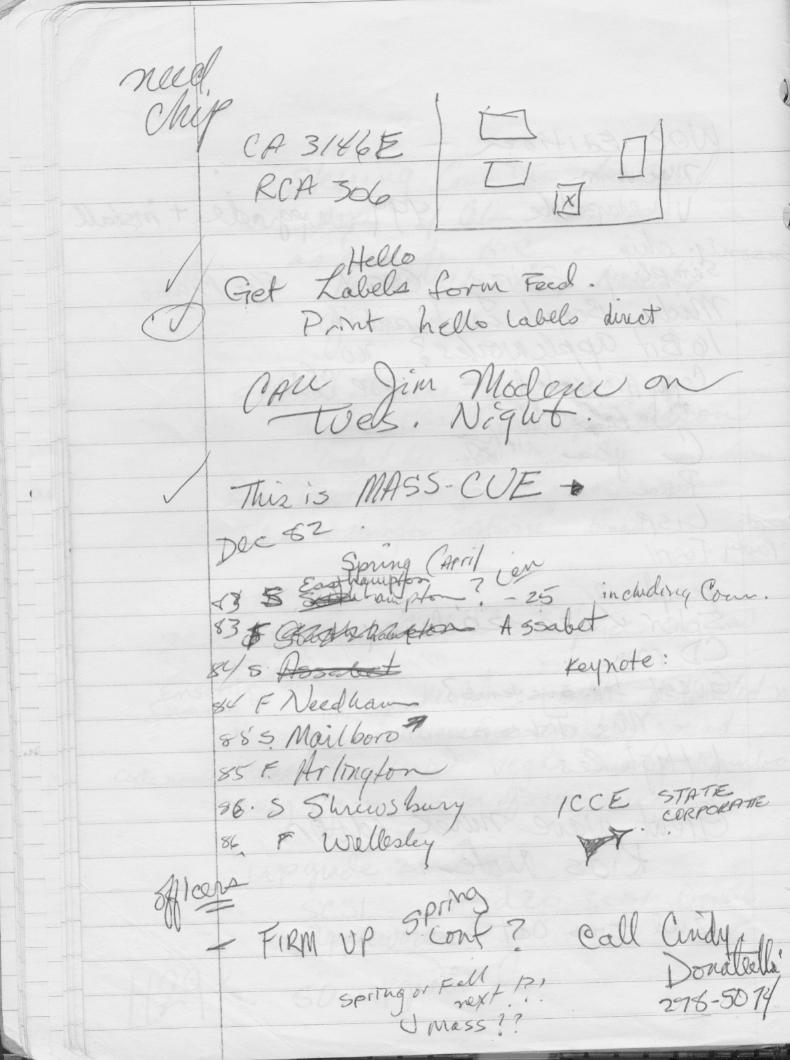 need
chip
CA 3146E
RCA 306
X
Hello
Get Labels form Feed.
Print hello Labels direct
CALL Jim on
Tues. Night.
This is MASS-CUE →
Dec 82
Spring (April
Easthampton
83 S ? - 25 including Conn.
83 F Assabet
84/S Assabet Keynote:
84 F Needham
85 S. Marlboro
85 F. Arlington
86. S Shrewsbury ICCE STATE
CORPORATE
86. F Wellesley
officers
- FIRM UP Spring Conf? Call Cindy
Donatelli
278-5074
Spring or Fall
next !?!
U Mass??